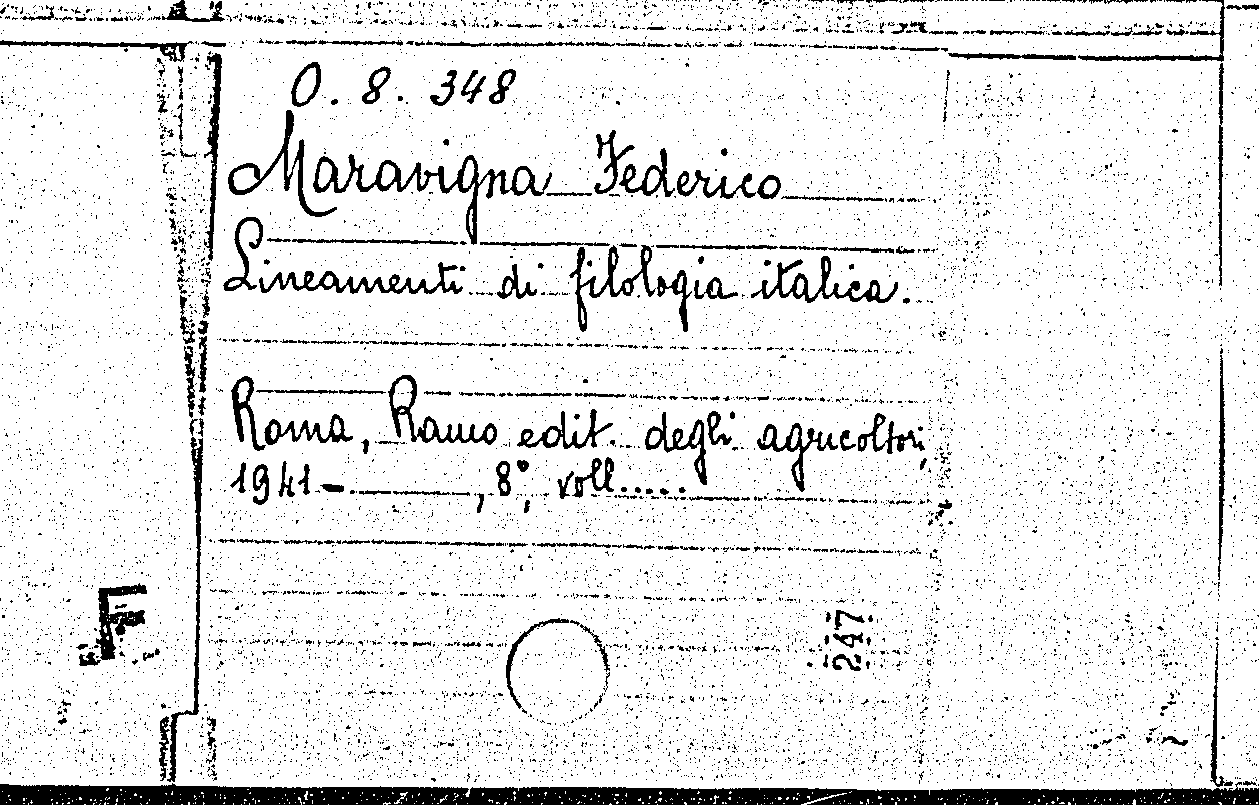 O. 8. 348
Maravigna Federico
Lineamenti di filologia italica.
Roma, Ramo edit. degli agricoltori,
1941 - , 8°, voll.....
F
247